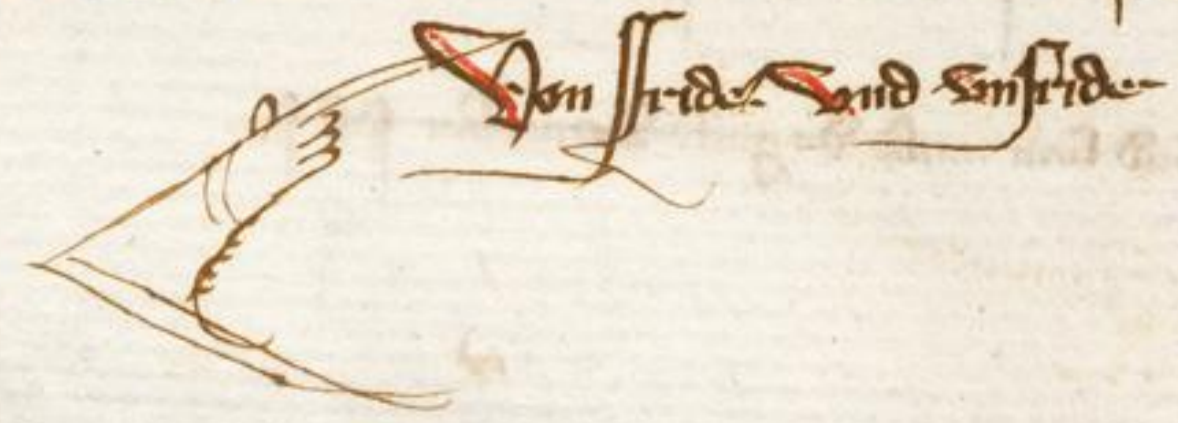 Von fride vnd vnfride